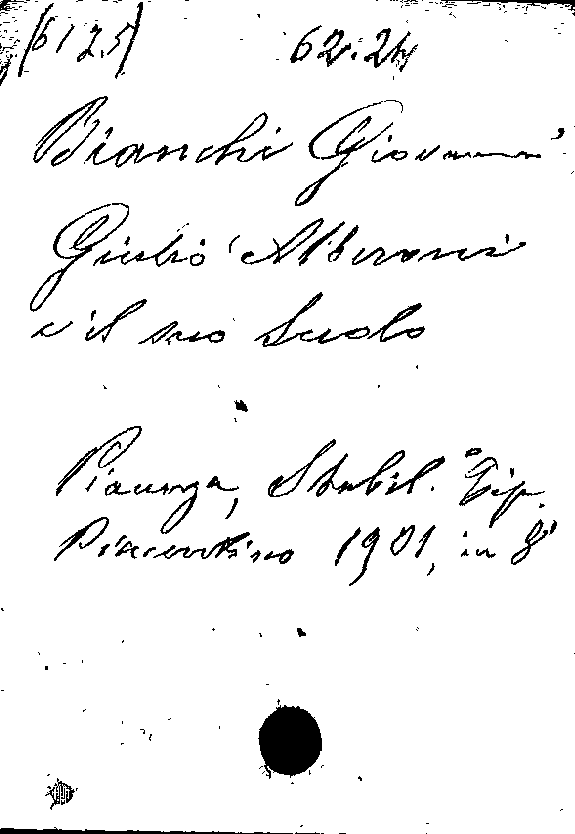 (6125) 62.24
Bianchi Giovanni
Giulio Alberoni
e il suo Secolo
Piacenza, Stabil. Tip.
Piacentino 1901, in 8°